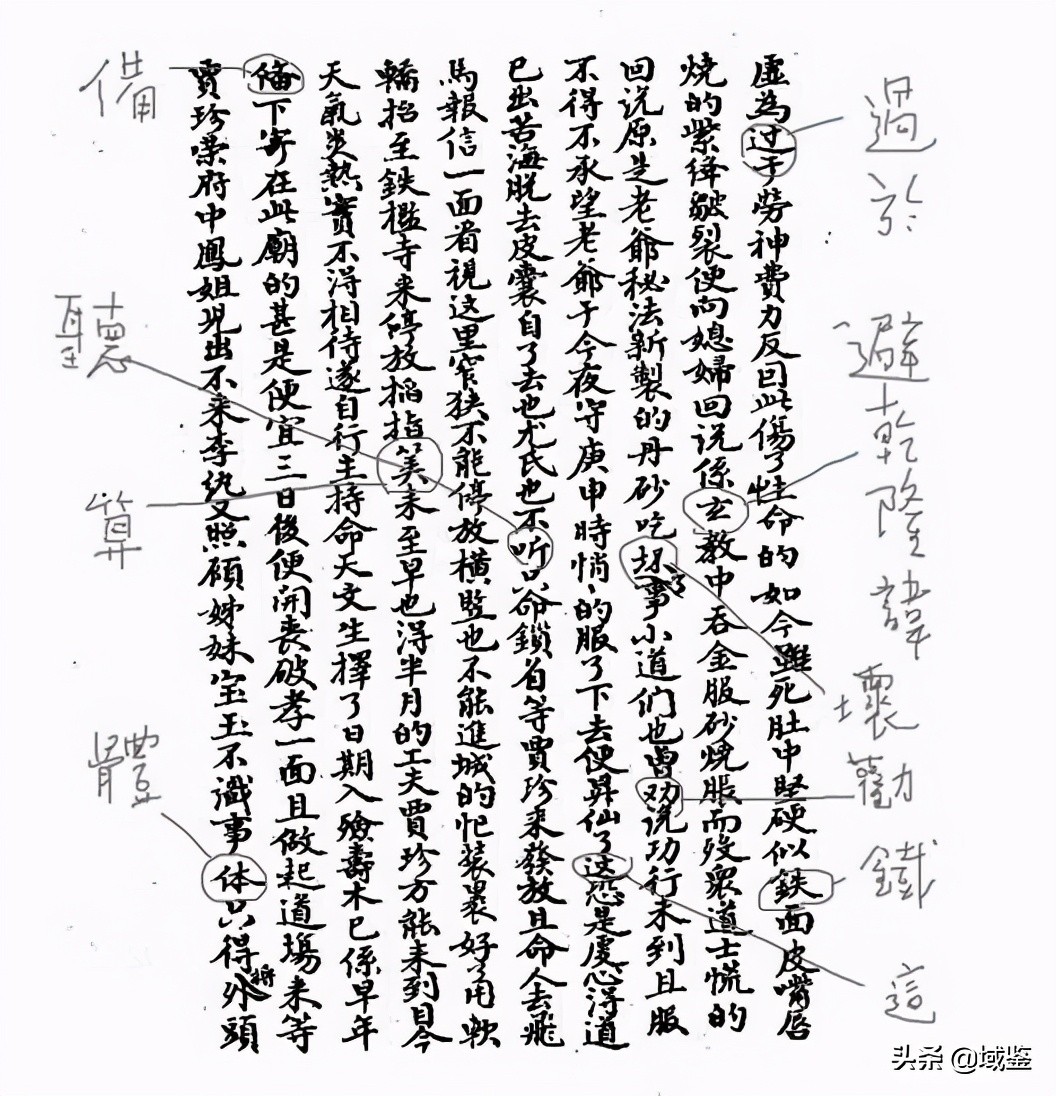 虛為过于勞神費力反囙此傷了性命的如今雖死肚中堅硬似鉄面皮嘴唇
燒的紫絳皺裂便向媳婦回说係玄教中吞金服砂燒脹而殁衆道士慌的
回说原是老爺秘法新製的丹砂吃坏了事小道们也曾劝说功行未到且服
不得不承望老爺于今夜守庚申時悄、的服了下去便昇仙了这恐是虔心得道
已出苦海脱去皮囊自了去也尤氏也不听只命鎖着等賈珍来發放且命人去飛
馬報信一面看視这里窄狭不能停放横竖也不能進城的忙装裹好了用軟
轎抬至鉄檻寺来停放掐指筭来至早也得半月的工夫賈珍方能来到目今
天氣炎熱實不得相待遂自行主持命天文生擇了日期入殮壽木已係早年
俻下寄在此廟的甚是便宜三日後便開喪破孝一面且做起道場来等
賈珍榮府中鳳姐児出不来李纨又照顾姊妹宝玉不識事体只得将外頭
過於
避乾隆諱
壞
勸
鐵
這
備
聽
算
體
头条 @域鉴